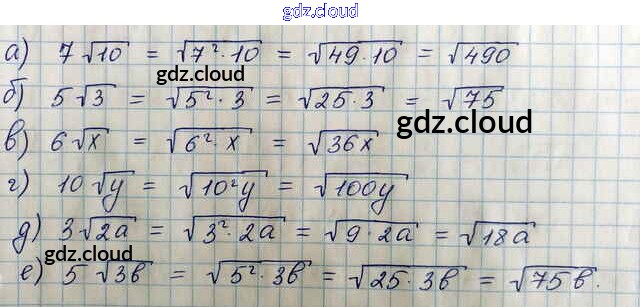 gdz.cloud
а) 7√10 = √7²·10 = √49·10 = √490
gdz.cloud
б) 5√3 = √5²·3 = √25·3 = √75
gdz.cloud
в) 6√x = √6²·x = √36x
г) 10√y = √10²y = √100y
д) 3√2a = √3²·2a = √9·2a = √18a
gdz.cloud
е) 5√3в = √5²·3в = √25·3в = √75в.